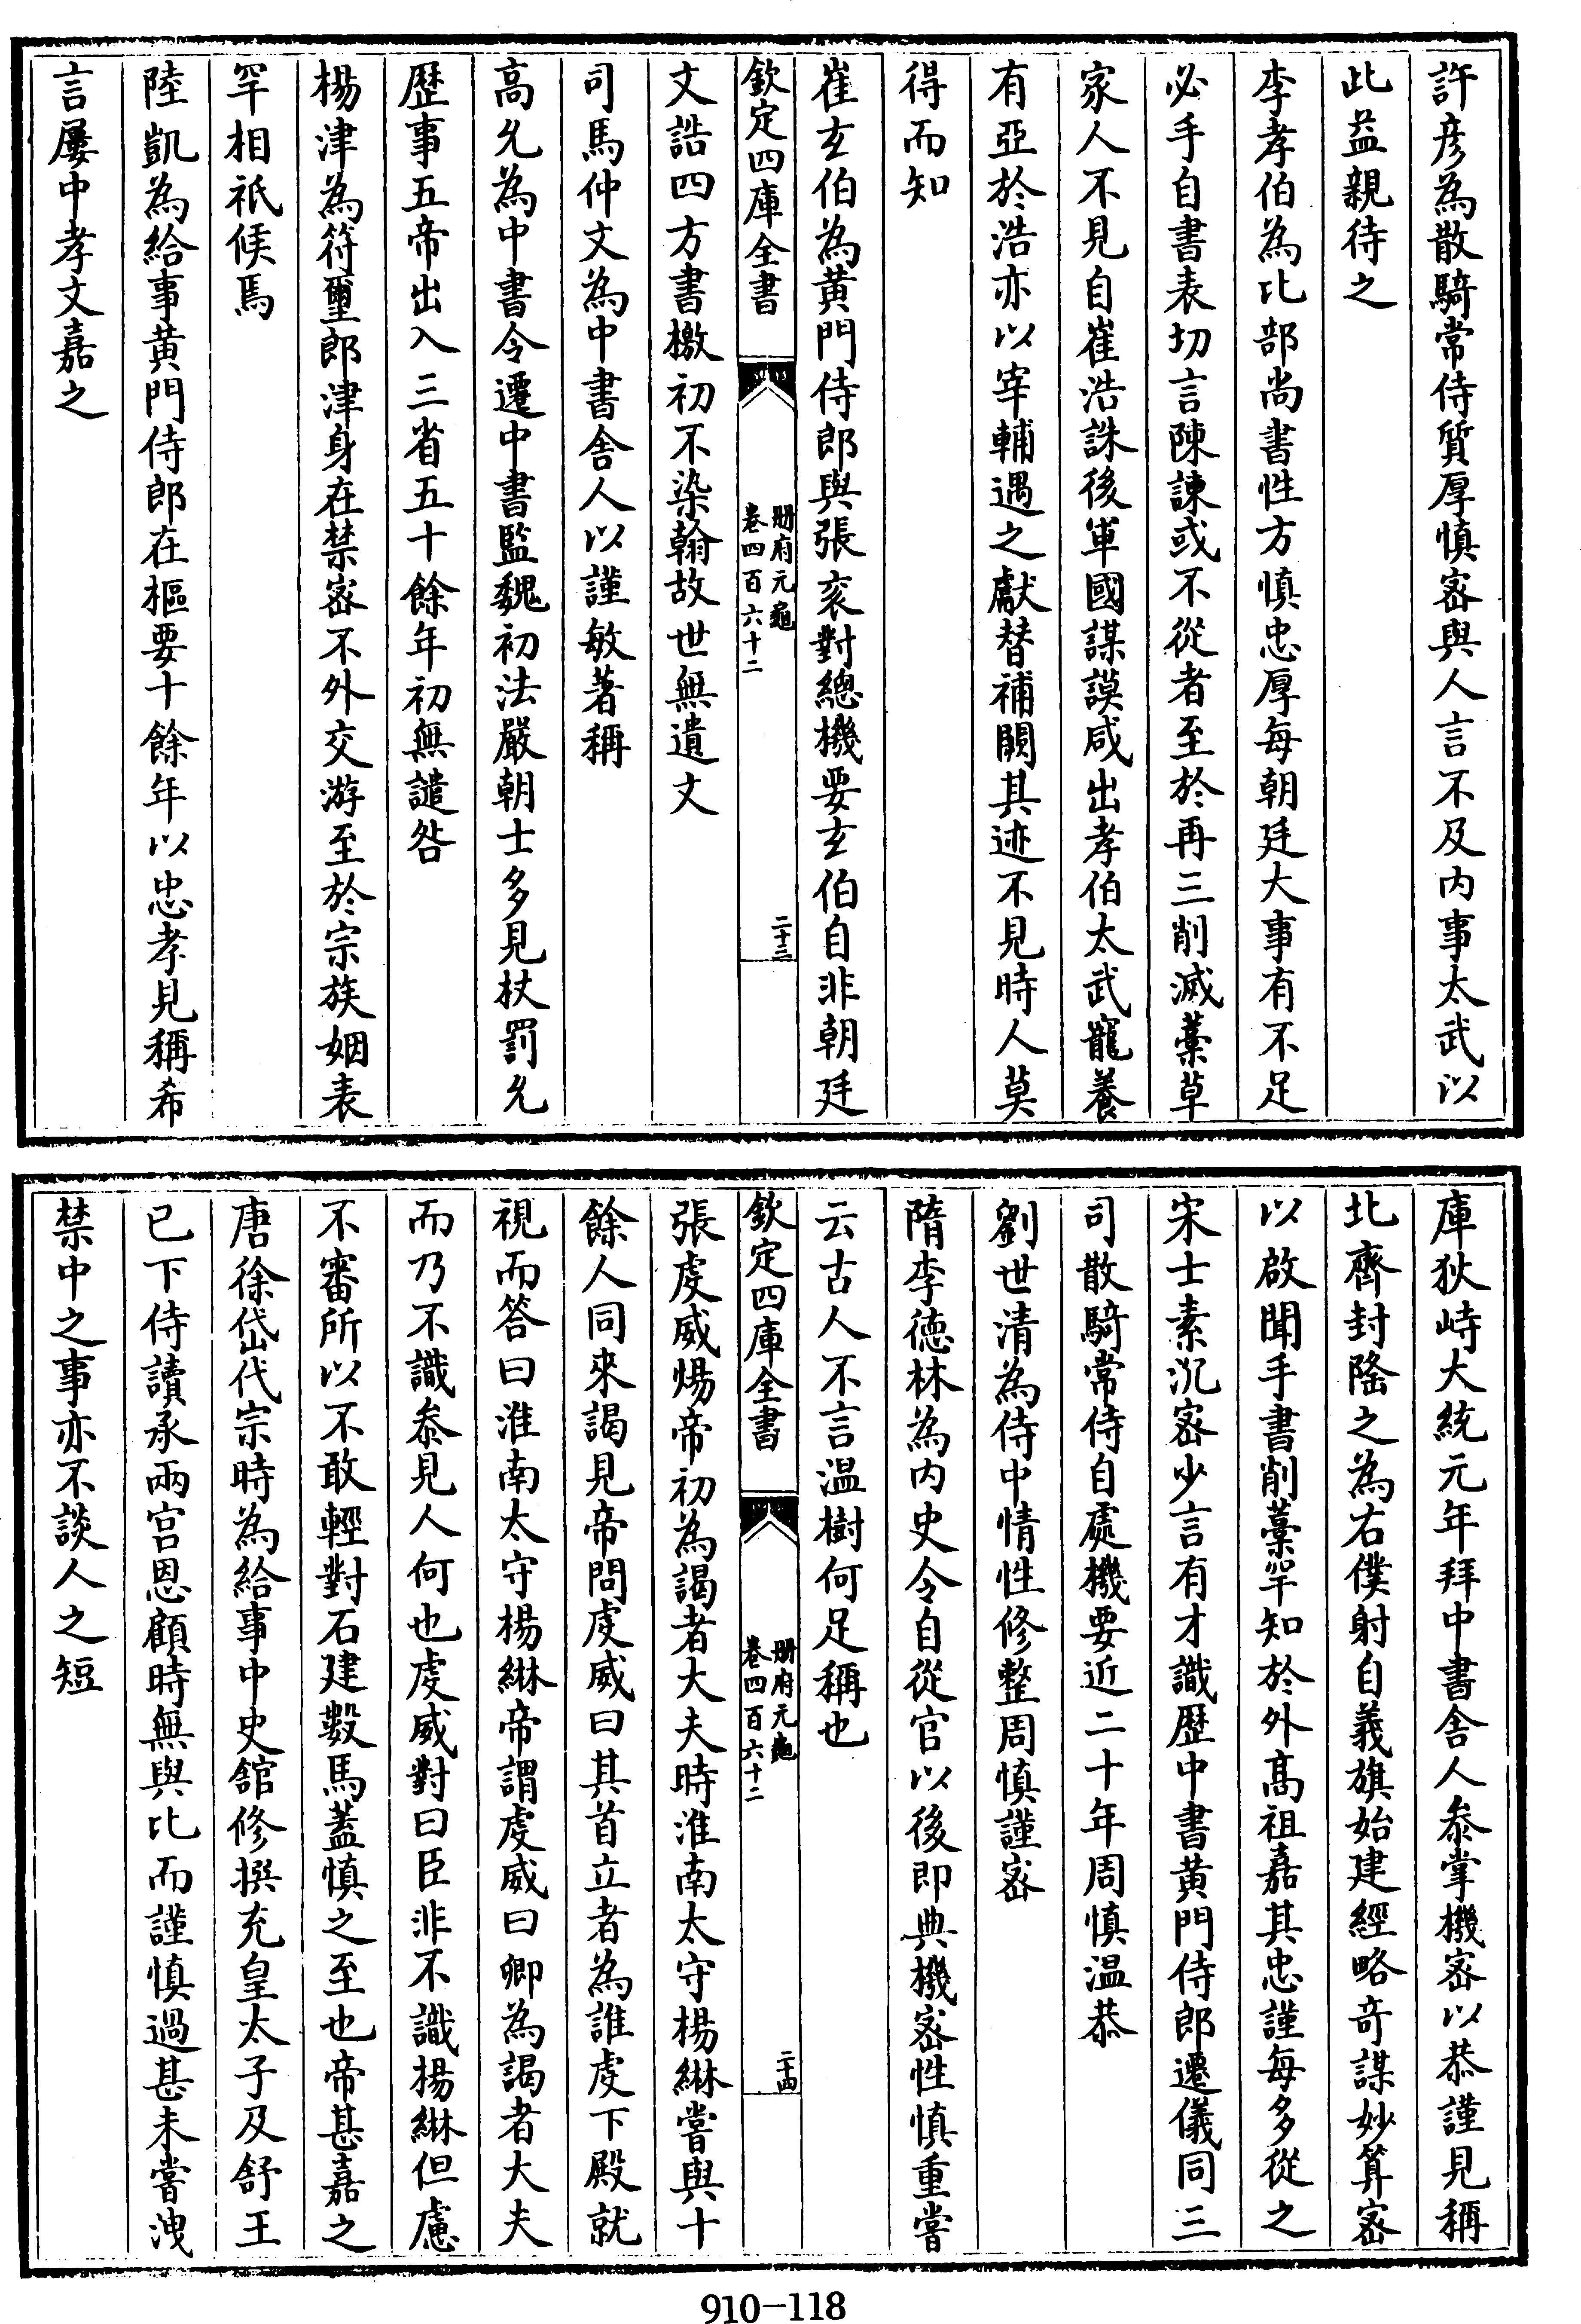 許彦為散騎常侍質厚慎密與人言不及内事太武以
此益親待之
李孝伯為比部尚書性方慎忠厚每朝廷大事有不足
必手自書表切言陳諫或不從者至於再三削滅藁草
家人不見自崔浩誅後軍國謀謨咸出孝伯太武寵養
有亞於浩亦以宰輔遇之獻替補闕其迹不見時人莫
得而知
崔𤣥伯為黄門侍郎與張衮對總機要𤣥伯自非朝廷
欽定四庫全書
册府元龜
卷四百六十二
二十三
文誥四方書檄初不染翰故世無遺文
司馬仲文為中書舍人以謹敏著稱
高允為中書令遷中書監魏初法嚴朝士多見杖罰允
歴事五帝出入三省五十餘年初無譴咎
楊津為符璽郎津身在禁密不外交游至於宗族姻表
罕相祇候焉
陸凱為給事黄門侍郎在樞要十餘年以忠孝見稱希
言屢中孝文嘉之
庫狄峙大統元年拜中書舍人叅掌機密以恭謹見稱
北齊封隆之為右僕射自義旗始建經略奇謀妙算密
以啟聞手書削藁罕知於外髙祖嘉其忠謹每多從之
宋士素沉密少言有才識歴中書黄門侍郎遷儀同三
司散騎常侍自處機要近二十年周慎温恭
劉世清為侍中情性修整周慎謹密
隋李徳林為内史令自從官以後即典機密性慎重嘗
云古人不言温樹何足稱也
欽定四庫全書
册府元龜
卷四百六十二
二十四
張䖍威煬帝初為謁者大夫時淮南太守楊綝嘗與十
餘人同來謁見帝問䖍威曰其首立者為誰䖍下殿就
視而答曰淮南太守楊綝帝謂䖍威曰卿為謁者大夫
而乃不識叅見人何也䖍威對曰臣非不識楊綝但慮
不審所以不敢輕對石建數馬蓋慎之至也帝甚嘉之
唐徐岱代宗時為給事中史館修撰充皇太子及舒王
已下侍讀承兩宫恩顧時無與比而謹慎過甚未嘗洩
禁中之事亦不談人之短
910-118